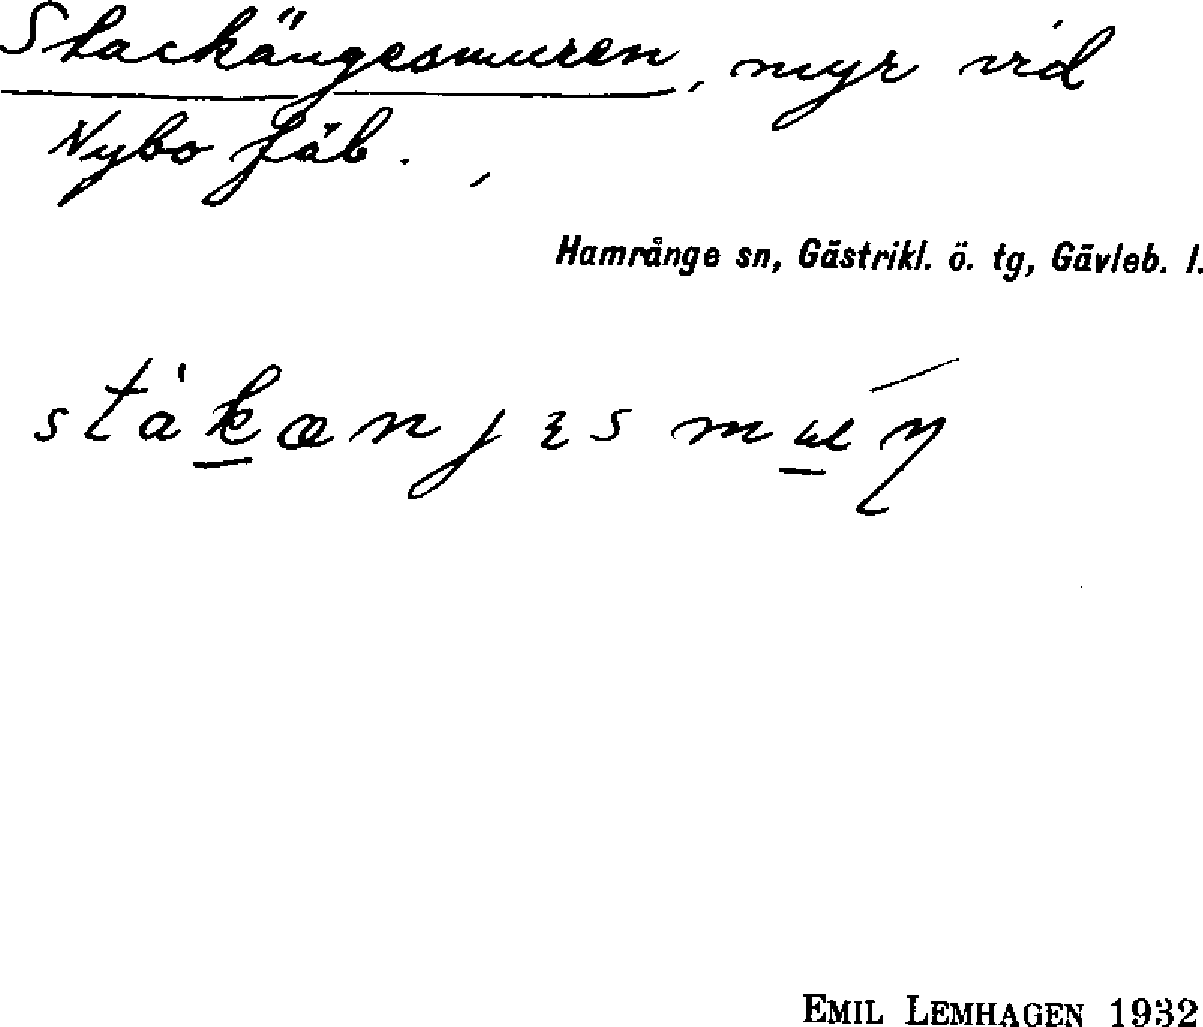 Stackängesmuren, myr vid
Nybo fäb.
Hamrånge sn, Gästrikl. ö. tg, Gävleb. l.
EMIL LEMHAGEN 1932